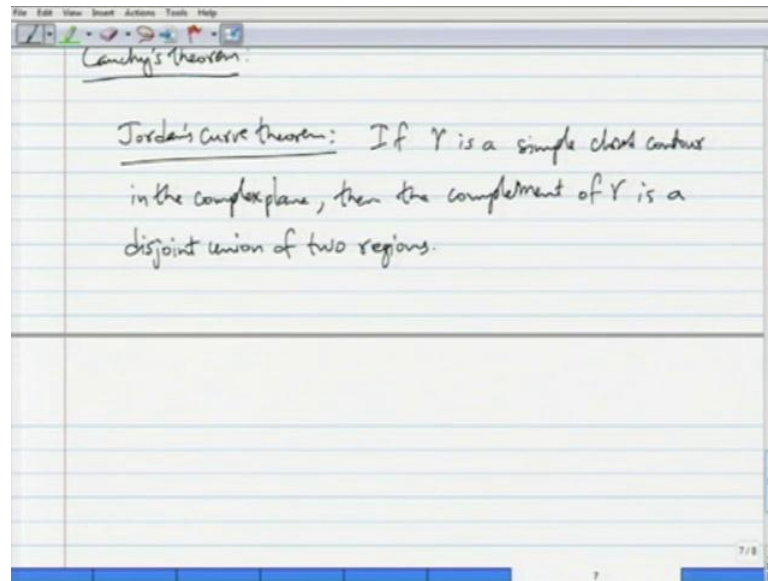 File Edit View Insert Actions Tools Help
Cauchy's theorem:
Jordan's curve theorem: If γ is a simple closed contour
in the complex plane, then the complement of γ is a
disjoint union of two regions.
7/8
7